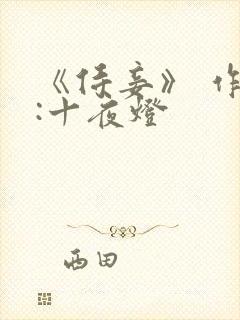 《侍妾》 作
:十夜燈
西田